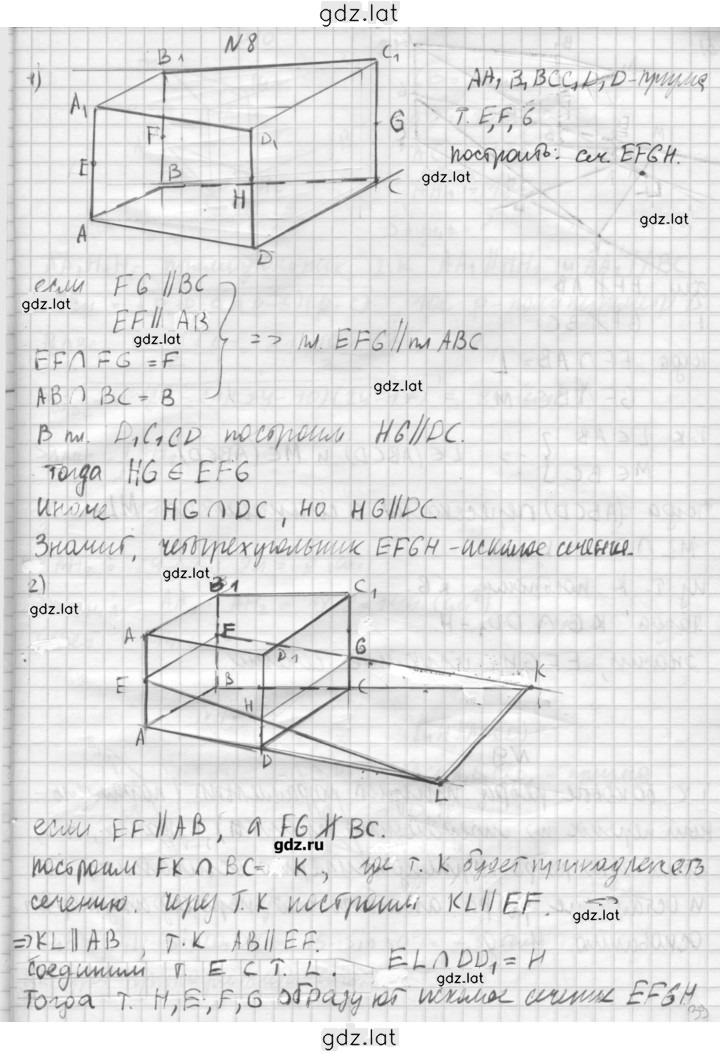 gdz.lat
N8
1)
B1
C1
A1
D1
F
G
E
B
H
C
A
D
AA1B1BCC1D1D - призма
т. E, F, G
построить: сеч. EFGH.
gdz.lat
gdz.lat
если FG || BC
gdz.lat
EF || AB
gdz.lat
=> пл. EFG || пл ABC
EF ∩ FG = F
gdz.lat
AB ∩ BC = B
В пл. D1C1CD построим HG || DC.
тогда HG ∈ EFG
Иначе HG ∩ DC, но HG || DC
Значит, четырехугольник EFGH - искомое сечение.
gdz.lat
2)
gdz.lat
B1
C1
A
F
D1
G
E
B
C
K
H
A
D
L
если EF || AB, а FG ∦ BC.
gdz.lat
построим FK ∩ BC = K, где т. K будет принадлежать
сечению. Через т. K построим KL || EF.
gdz.lat
=> KL || AB, т.к AB || EF.
Соединим т. E с т. L. EL ∩ DD1 = H
gdz.lat
Тогда т. H, E, F, G образуют искомое сечение EFGH
gdz.lat